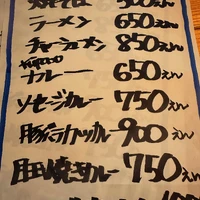 500えん
ラーメン 650えん
チャーシューメン 850えん
カレー 650えん
ソセージカレー 750えん
カツカレー 900えん
カレー 750えん